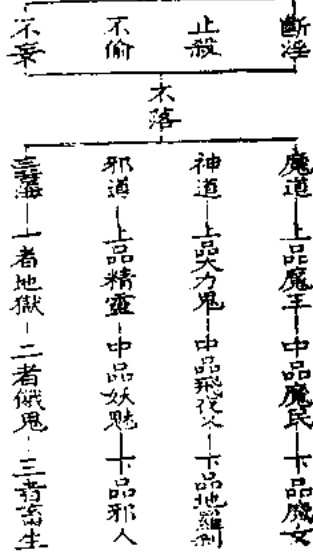 斷淫
止殺
不偷
不落
魔道—上品魔王—中品魔民—下品魔女
神道—上品大力鬼—中品飛夜叉—下品地羅刹
邪道—上品精靈—中品妖魅—下品邪人
一者地獄—二者餓鬼—三者畜生